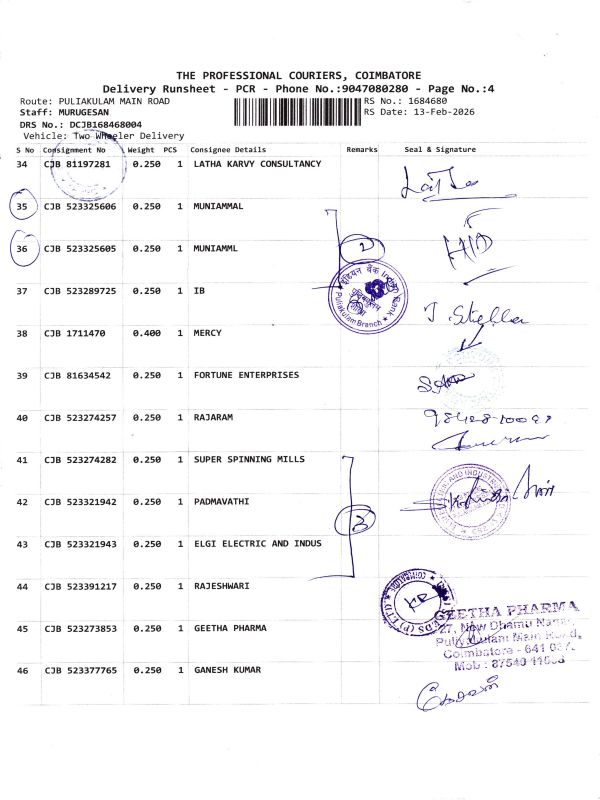 THE PROFESSIONAL COURIERS, COIMBATORE
Delivery Runsheet - PCR - Phone No.:9047080280 - Page No.:4
Route: PULIAKULAM MAIN ROAD
RS No.: 1684680
Staff: MURUGESAN
RS Date: 13-Feb-2026
DRS No.: DCJB168468004
Vehicle: Two Wheeler Delivery
S No Consignment No Weight PCS Consignee Details Remarks Seal & Signature
34 CJB 81197281 0.250 1 LATHA KARVY CONSULTANCY
35 CJB 523325606 0.250 1 MUNIAMMAL
36 CJB 523325605 0.250 1 MUNIAMML
2
37 CJB 523289725 0.250 1 IB
इंडियन बैंक Indian Bank
Puliakulam Branch
J. Stella
38 CJB 1711470 0.400 1 MERCY
39 CJB 81634542 0.250 1 FORTUNE ENTERPRISES
40 CJB 523274257 0.250 1 RAJARAM
41 CJB 523274282 0.250 1 SUPER SPINNING MILLS
42 CJB 523321942 0.250 1 PADMAVATHI
3
43 CJB 523321943 0.250 1 ELGI ELECTRIC AND INDUS
44 CJB 523391217 0.250 1 RAJESHWARI
GEETHA PHARMA
27, New Dhamu Nagar,
Puliyakulam Main Road,
Coimbatore - 641 037.
Mob : 87540
45 CJB 523273853 0.250 1 GEETHA PHARMA
46 CJB 523377765 0.250 1 GANESH KUMAR